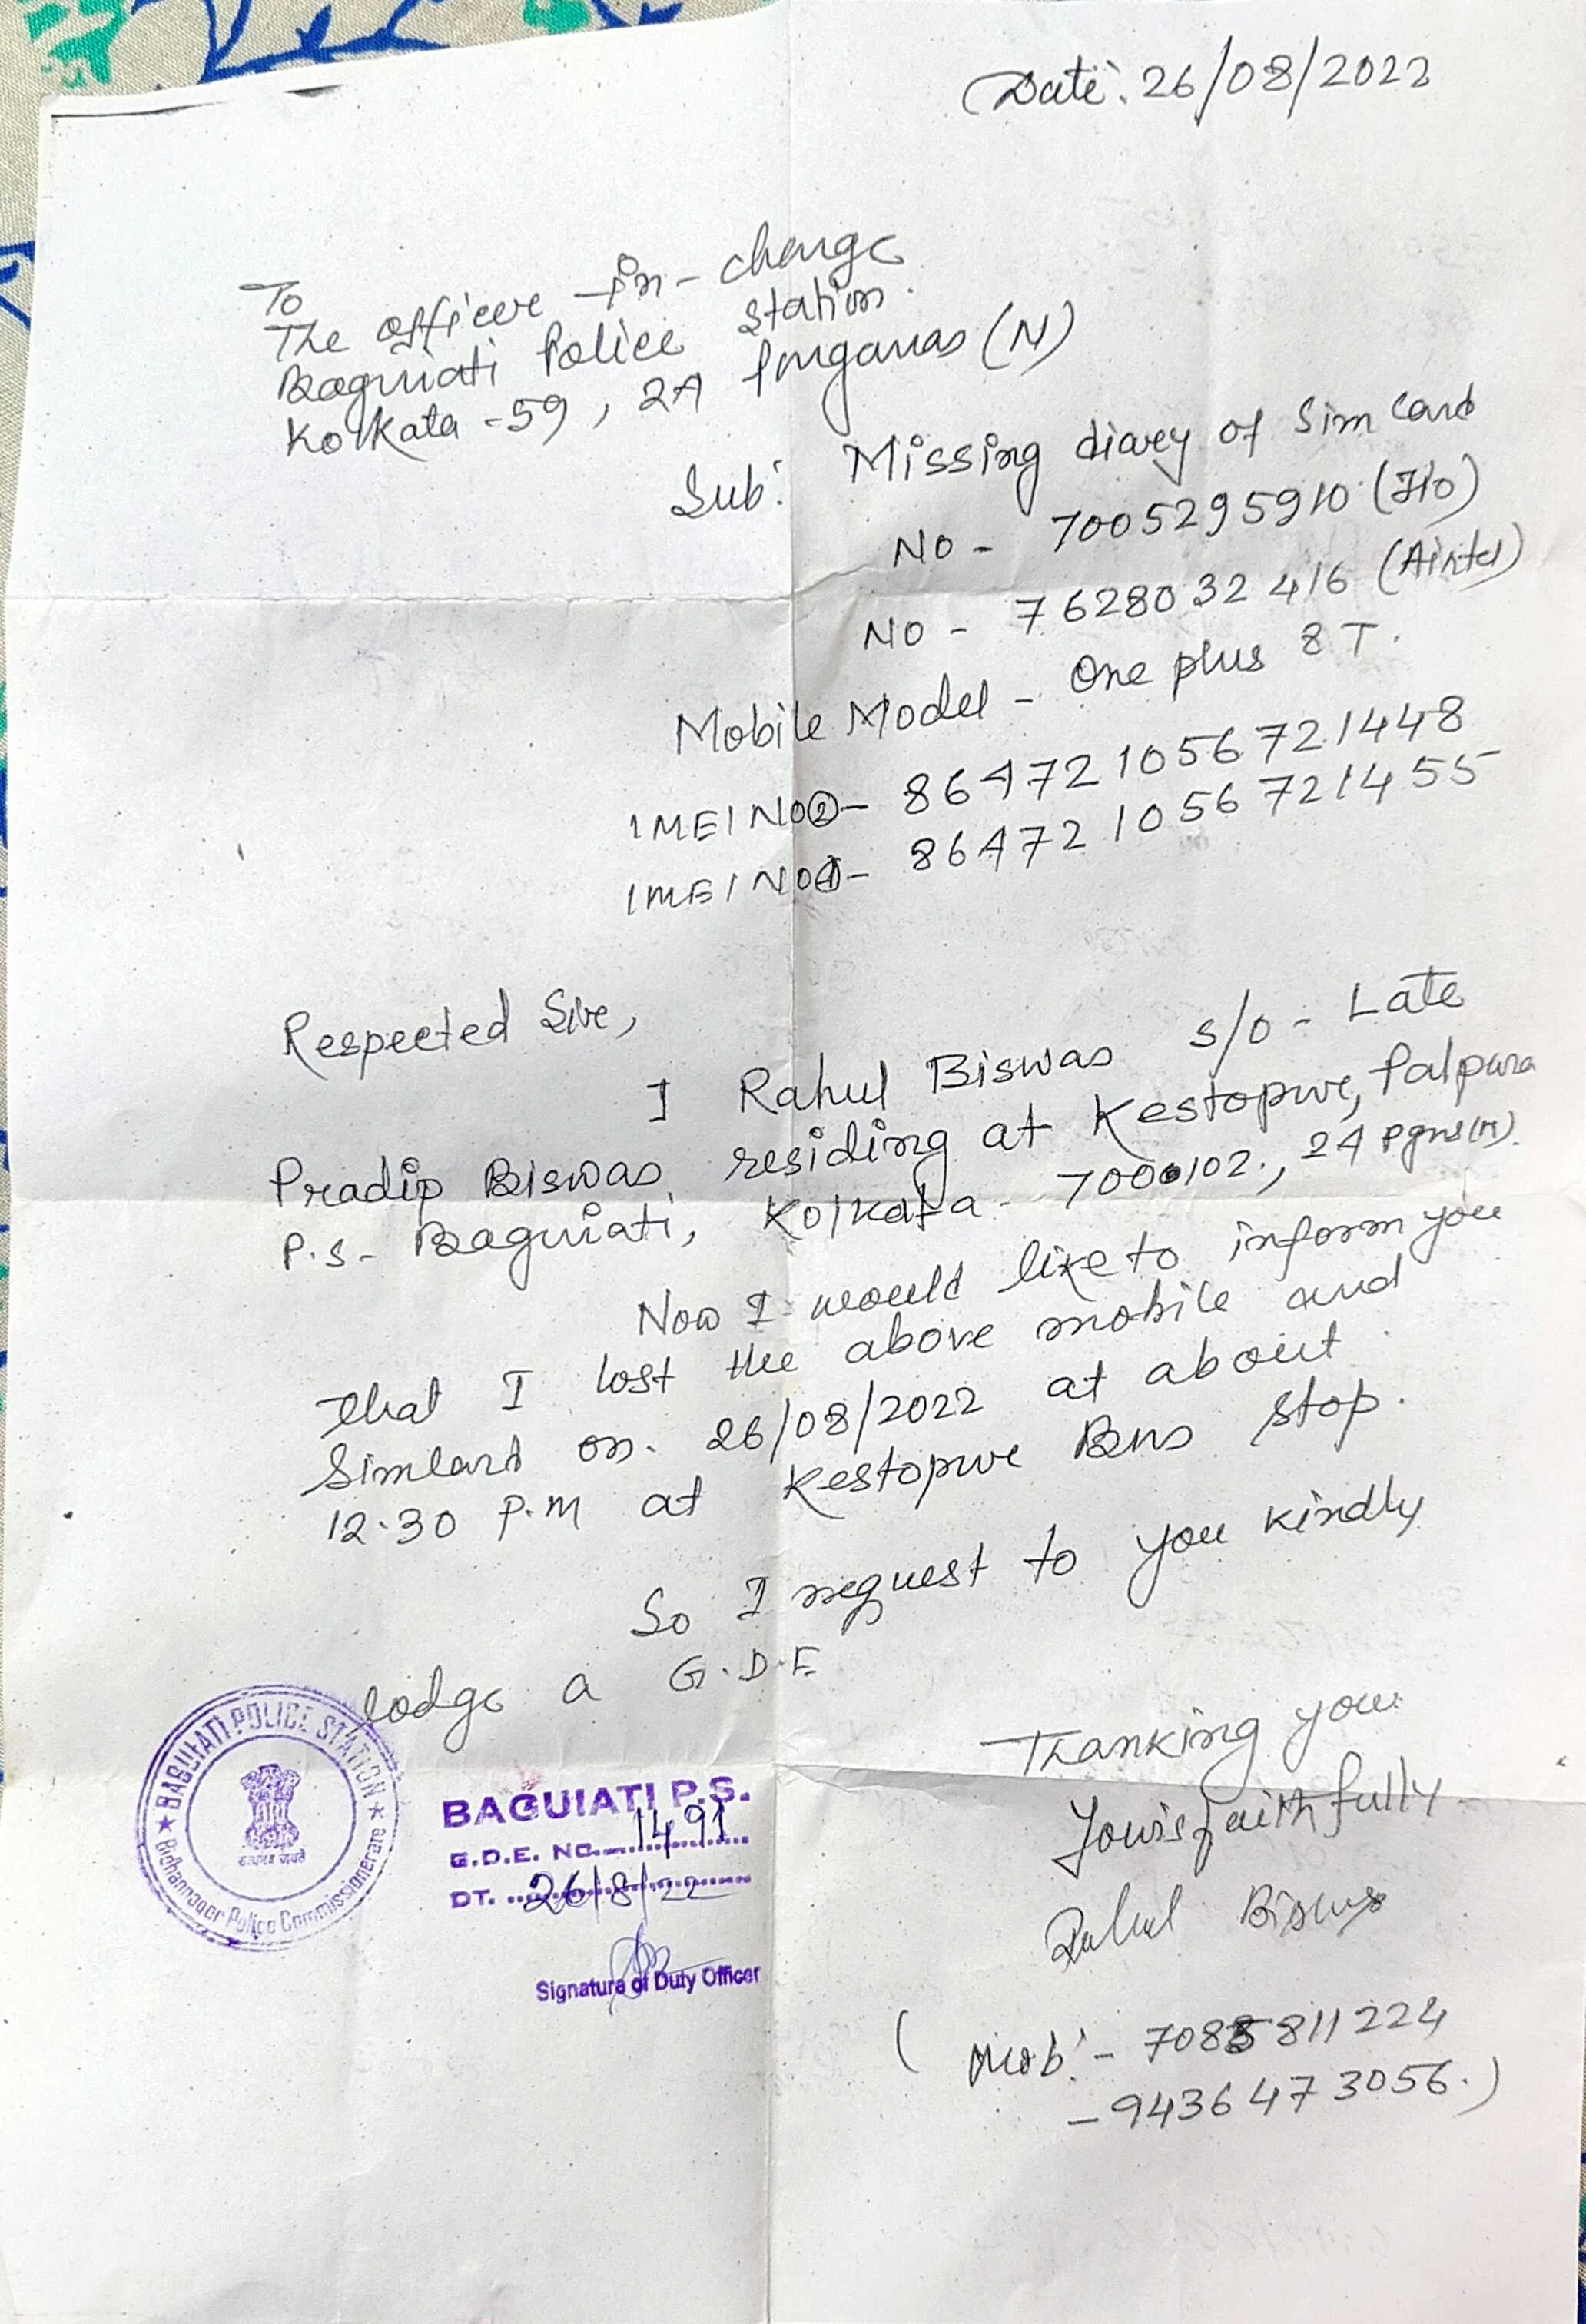 Date: 26/08/2022
To
The officer -in- charge
Baguiati Police Station.
Kolkata -59, 24 Parganas (N)
Sub: Missing diary of Sim Card
NO - 7005295910 (Jio)
NO - 7628032416 (Airtel)
Mobile Model - One plus 8T.
IMEI NO② - 864721056721448
IMEI NO① - 864721056721455
Respected Sir,
I Rahul Biswas s/o - Late
Pradip Biswas residing at Kestopur, Palpara
P.S - Baguiati, Kolkata - 7000102., 24 pgns(N).
Now I would like to inform you
that I lost the above mobile and
Simcard on. 26/08/2022 at about
12.30 P.M at Kestopur Bus Stop.
So I request to you kindly
lodge a G.D.E
Thanking you
Yours faithfully
Rahul Biswas
(Mob:- 7085811224
- 9436473056.)
BAGUIATI POLICE STATION
Bidhannagar Police Commissionerate
सत्यमेव जयते
BAGUIATI P.S.
G.D.E. NO. 1491
DT. 26/8/22
Signature of Duty Officer